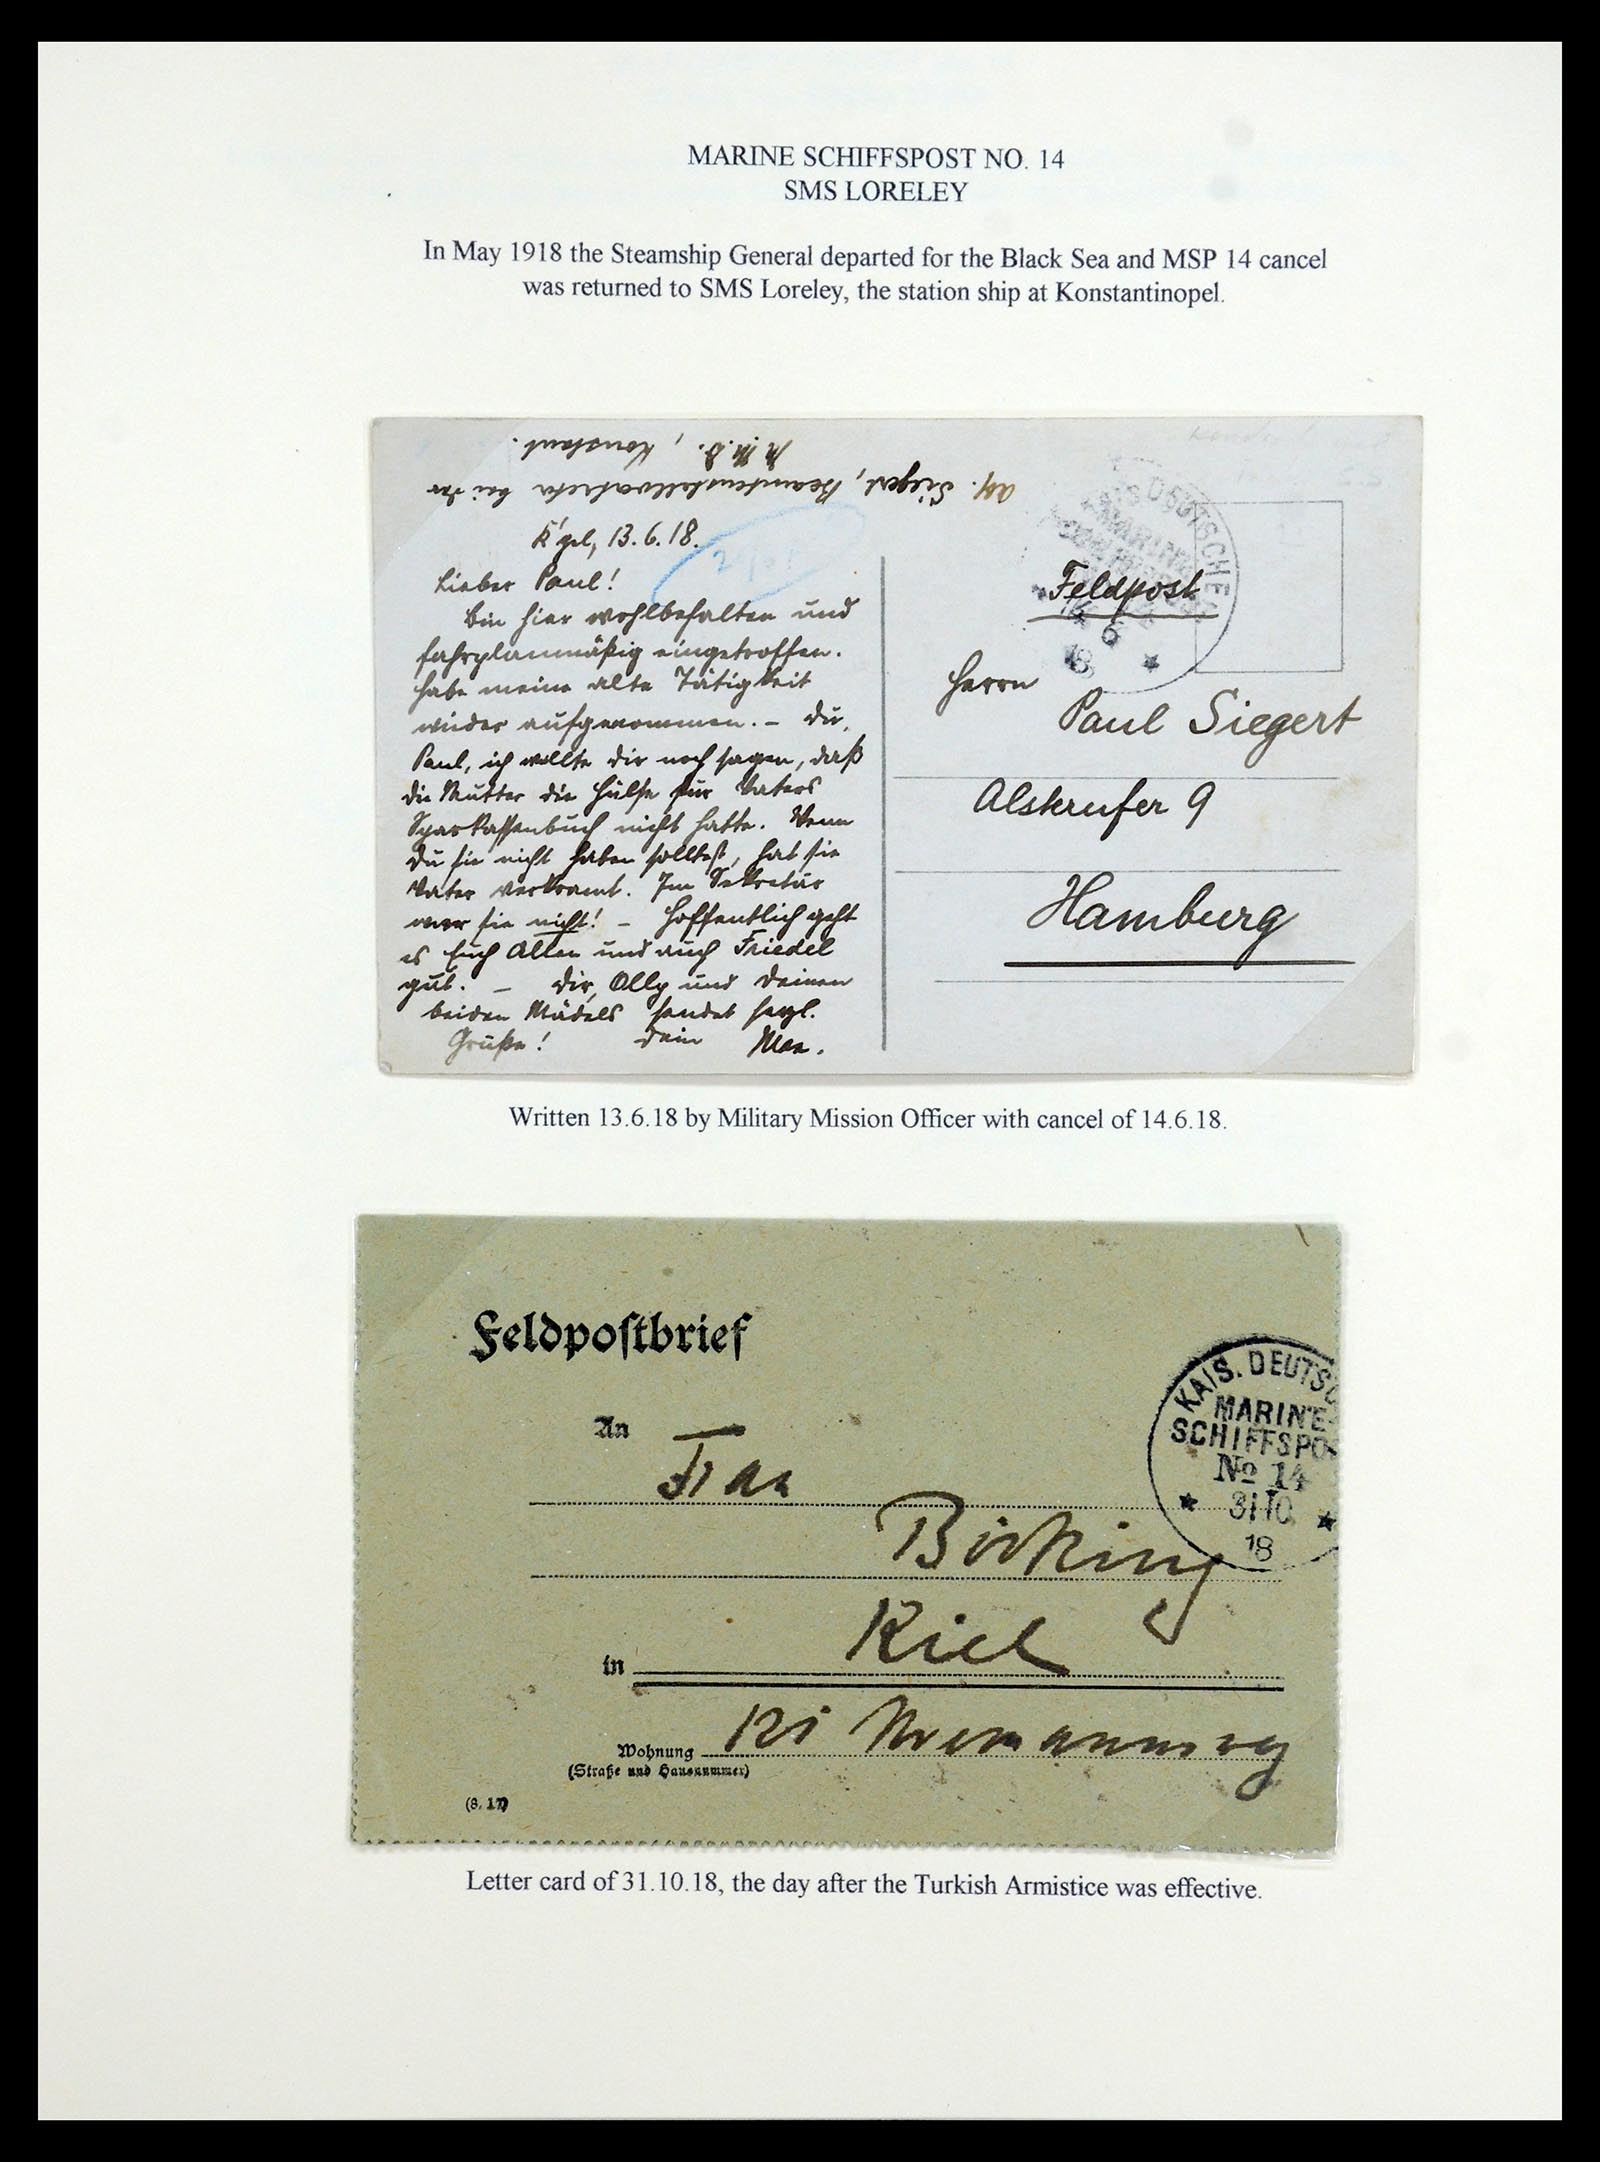 MARINE SCHIFFSPOST NO. 14
SMS LORELEY
In May 1918 the Steamship General departed for the Black Sea and MSP 14 cancel
was returned to SMS Loreley, the station ship at Konstantinopel.
Abs. Siegert, Beamtenstellvertreter bei der
M.M.D., Konstant.
K'pel, 13.6.18.
Lieber Paul!
Bin hier wohlbehalten und
fahrplanmäßig eingetroffen.
Habe meine alte Tätigkeit
wieder aufgenommen. – Du,
Paul, ich wollte dir noch sagen, daß
die Mutter die Hülse für Vaters
Sparkassenbuch nicht hatte. Wenn
Du sie nicht haben solltest, hat sie
Vater verkramt. Im Sekretär
war sie nicht! – Hoffentlich geht
es Euch Allen und auch Friedel
gut. – Dir, Olly und Deinen
beiden Mädels sendet herzl.
Grüße! Dein Max.
DEUTSCHE
MARINE
6
18
Feldpost
Herrn
Paul Siegert
Alsterufer 9
Hamburg
Written 13.6.18 by Military Mission Officer with cancel of 14.6.18.
Feldpostbrief
KAIS. DEUTSC
MARINE-
SCHIFFSPO
No 14
31 10
18
An Frau
Birking
in Kiel
Wohnung
(Straße und Hausnummer)
(8. 17)
Letter card of 31.10.18, the day after the Turkish Armistice was effective.